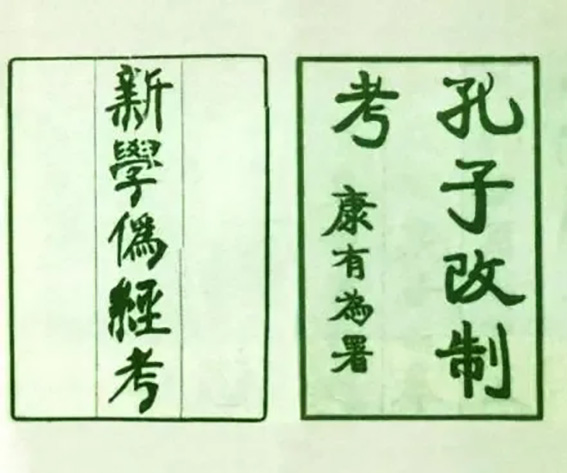 孔子改制
考
康有為署
新學僞經考